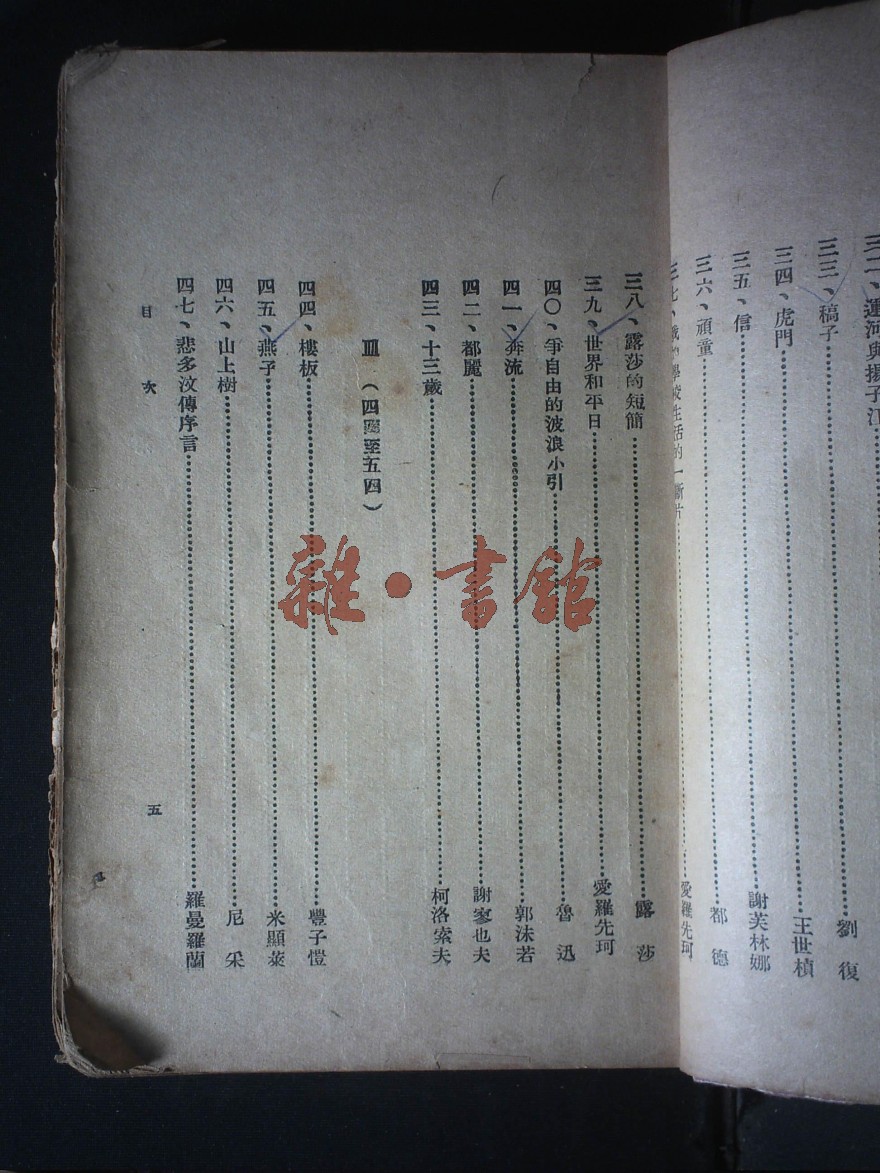 三二、運河與揚子江
三三、稿子……劉復
三四、虎門……王世楨
三五、信……謝芙林娜
三六、頑童……都德
三七、我的學校生活的一斷片……愛羅先珂
三八、露莎的短簡……露莎
三九、世界和平日……愛羅先珂
四〇、爭自由的波浪小引……魯迅
四一、奔流……郭沫若
四二、都麗……謝寥也夫
四三、十三歲……柯洛索夫
皿(四四至五四)
四四、樓板……豐子愷
四五、燕子……米顯萊
四六、山上樹……尼采
四七、悲多汶傳序言……羅曼羅蘭
目次
五
雜·書館